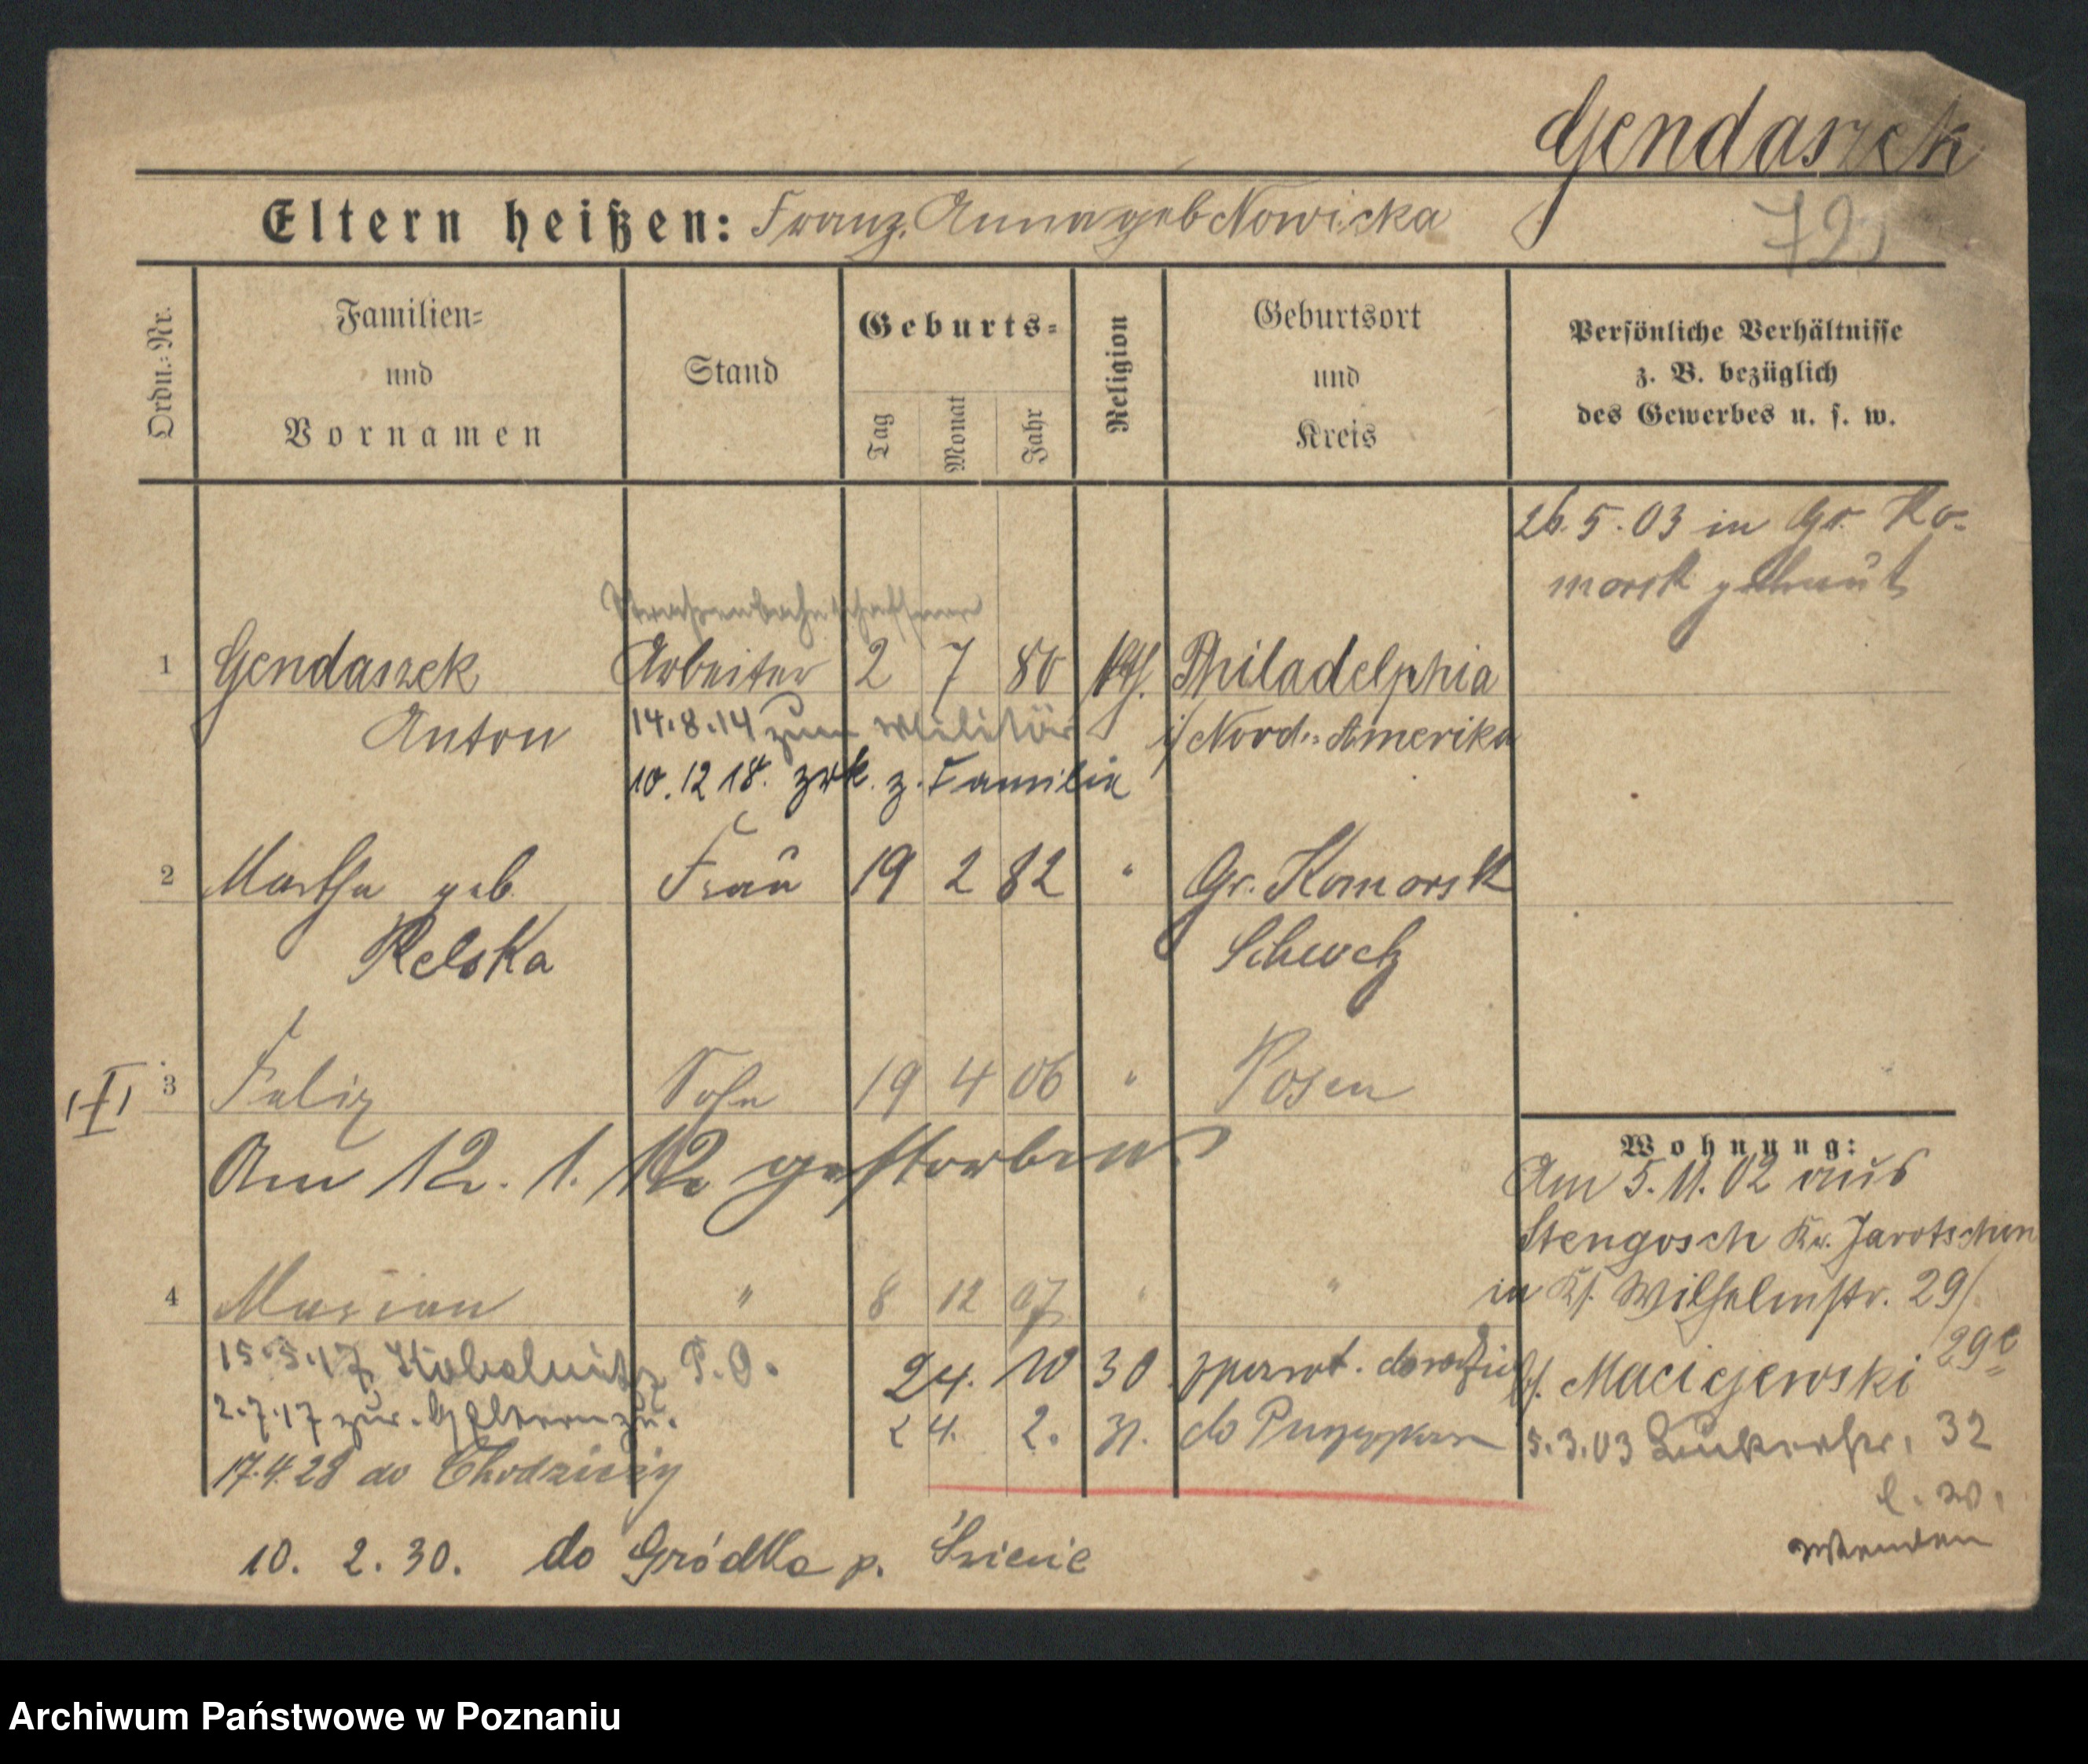 Gendaszek
72
Eltern heißen: Franz, Anna geb Nowicka
Ordn.-Nr.
Familien-
und
Vornamen
Stand
Geburts-
Tag
Monat
Jahr
Religion
Geburtsort
und
Kreis
Persönliche Verhältnisse
z. B. bezüglich
des Gewerbes u. s. w.
26.5.03 in Gr. Ko-
morsk getraut
Straßenbahnschaffner
1 Gendaszek Arbeiter 2 7 80 kth. Philadelphia
Anton 14.8.14 zum Militär i/Nord-Amerika
10.12 18. zrk. z. Familie
2 Martha geb. Frau 19 2 82 " Gr. Komorsk
Relska Schwetz
3 Felix Sohn 19 4 06 " Posen
Am 12. 1. 12 gestorben
Wohnung:
Am 5.11.02 aus
Stengosch Kr. Jarotschin
in Kf. Wilhelmstr. 29/
29e
b/. Maciejewski
5.3.03 32
l. W.
wenden
4 Marian " 8 12 07 " "
15.5.17 Kobelnitz P.O.
2.7.17 zur. Eltern zu.
17.4.28 do Chodzieży
24. 10 30
24. 2. 31. do
10. 2. 30. do Gródka p.
Archiwum Państwowe w Poznaniu